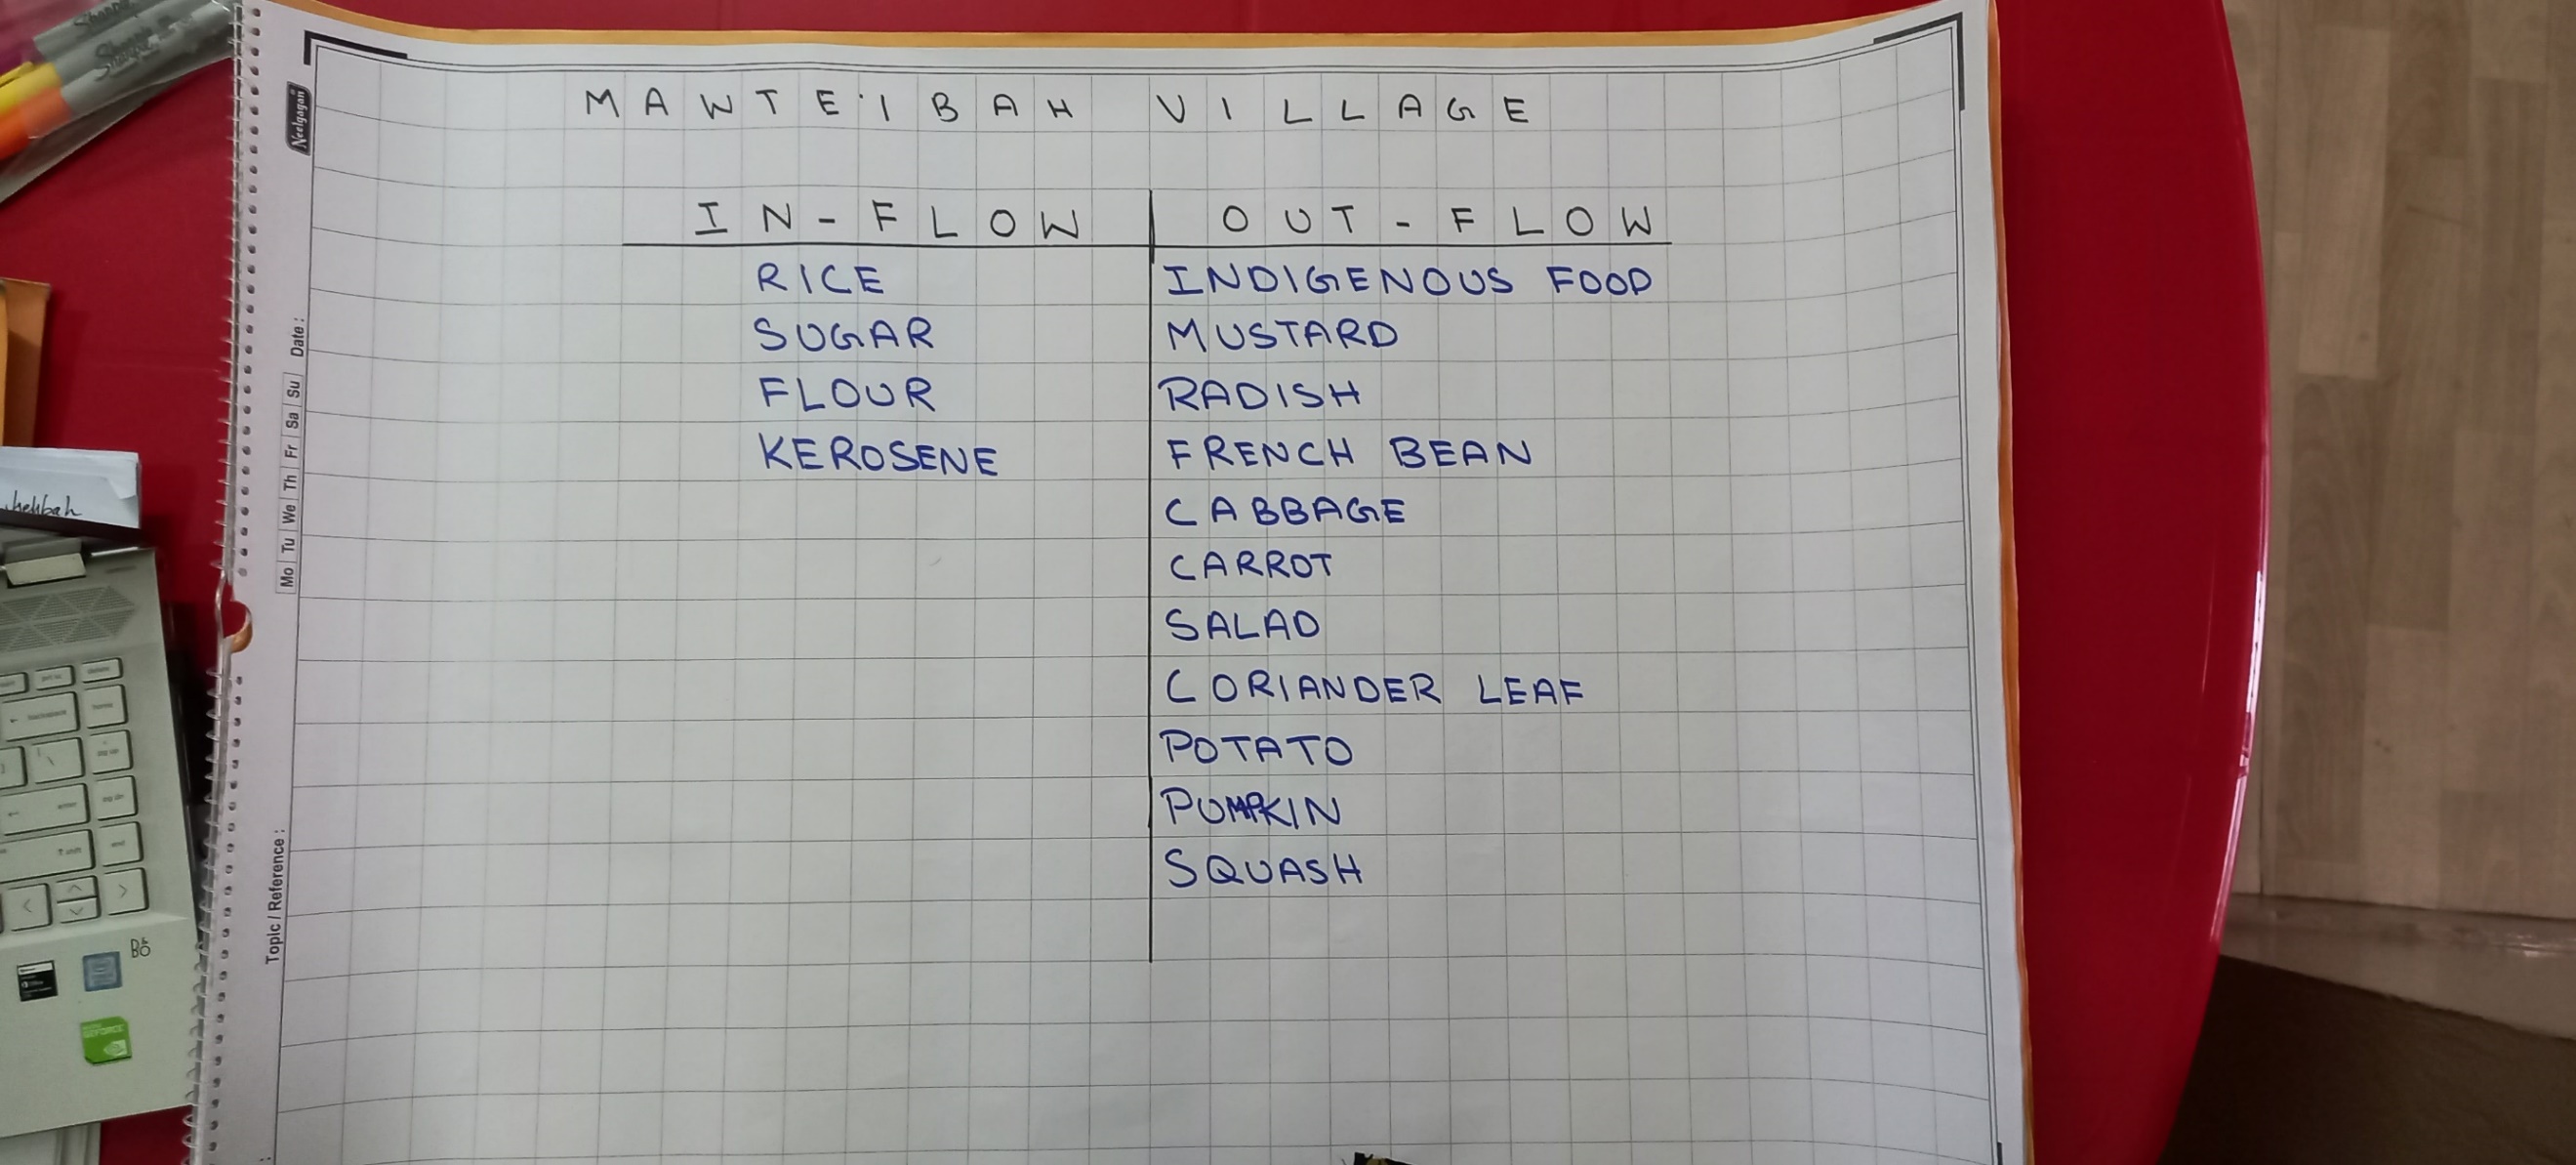 MAWTE'IBAH VILLAGE
IN-FLOW OUT-FLOW
RICE INDIGENOUS FOOD
SUGAR MUSTARD
FLOUR RADISH
KEROSENE FRENCH BEAN
CABBAGE
CARROT
SALAD
CORIANDER LEAF
POTATO
PUMPKIN
SQUASH
Neelgagan
Mo Tu We Th Fr Sa Su Date :
Topic / Reference :
Sharpie
backspace
home
enter
shift
end
GEFORCE